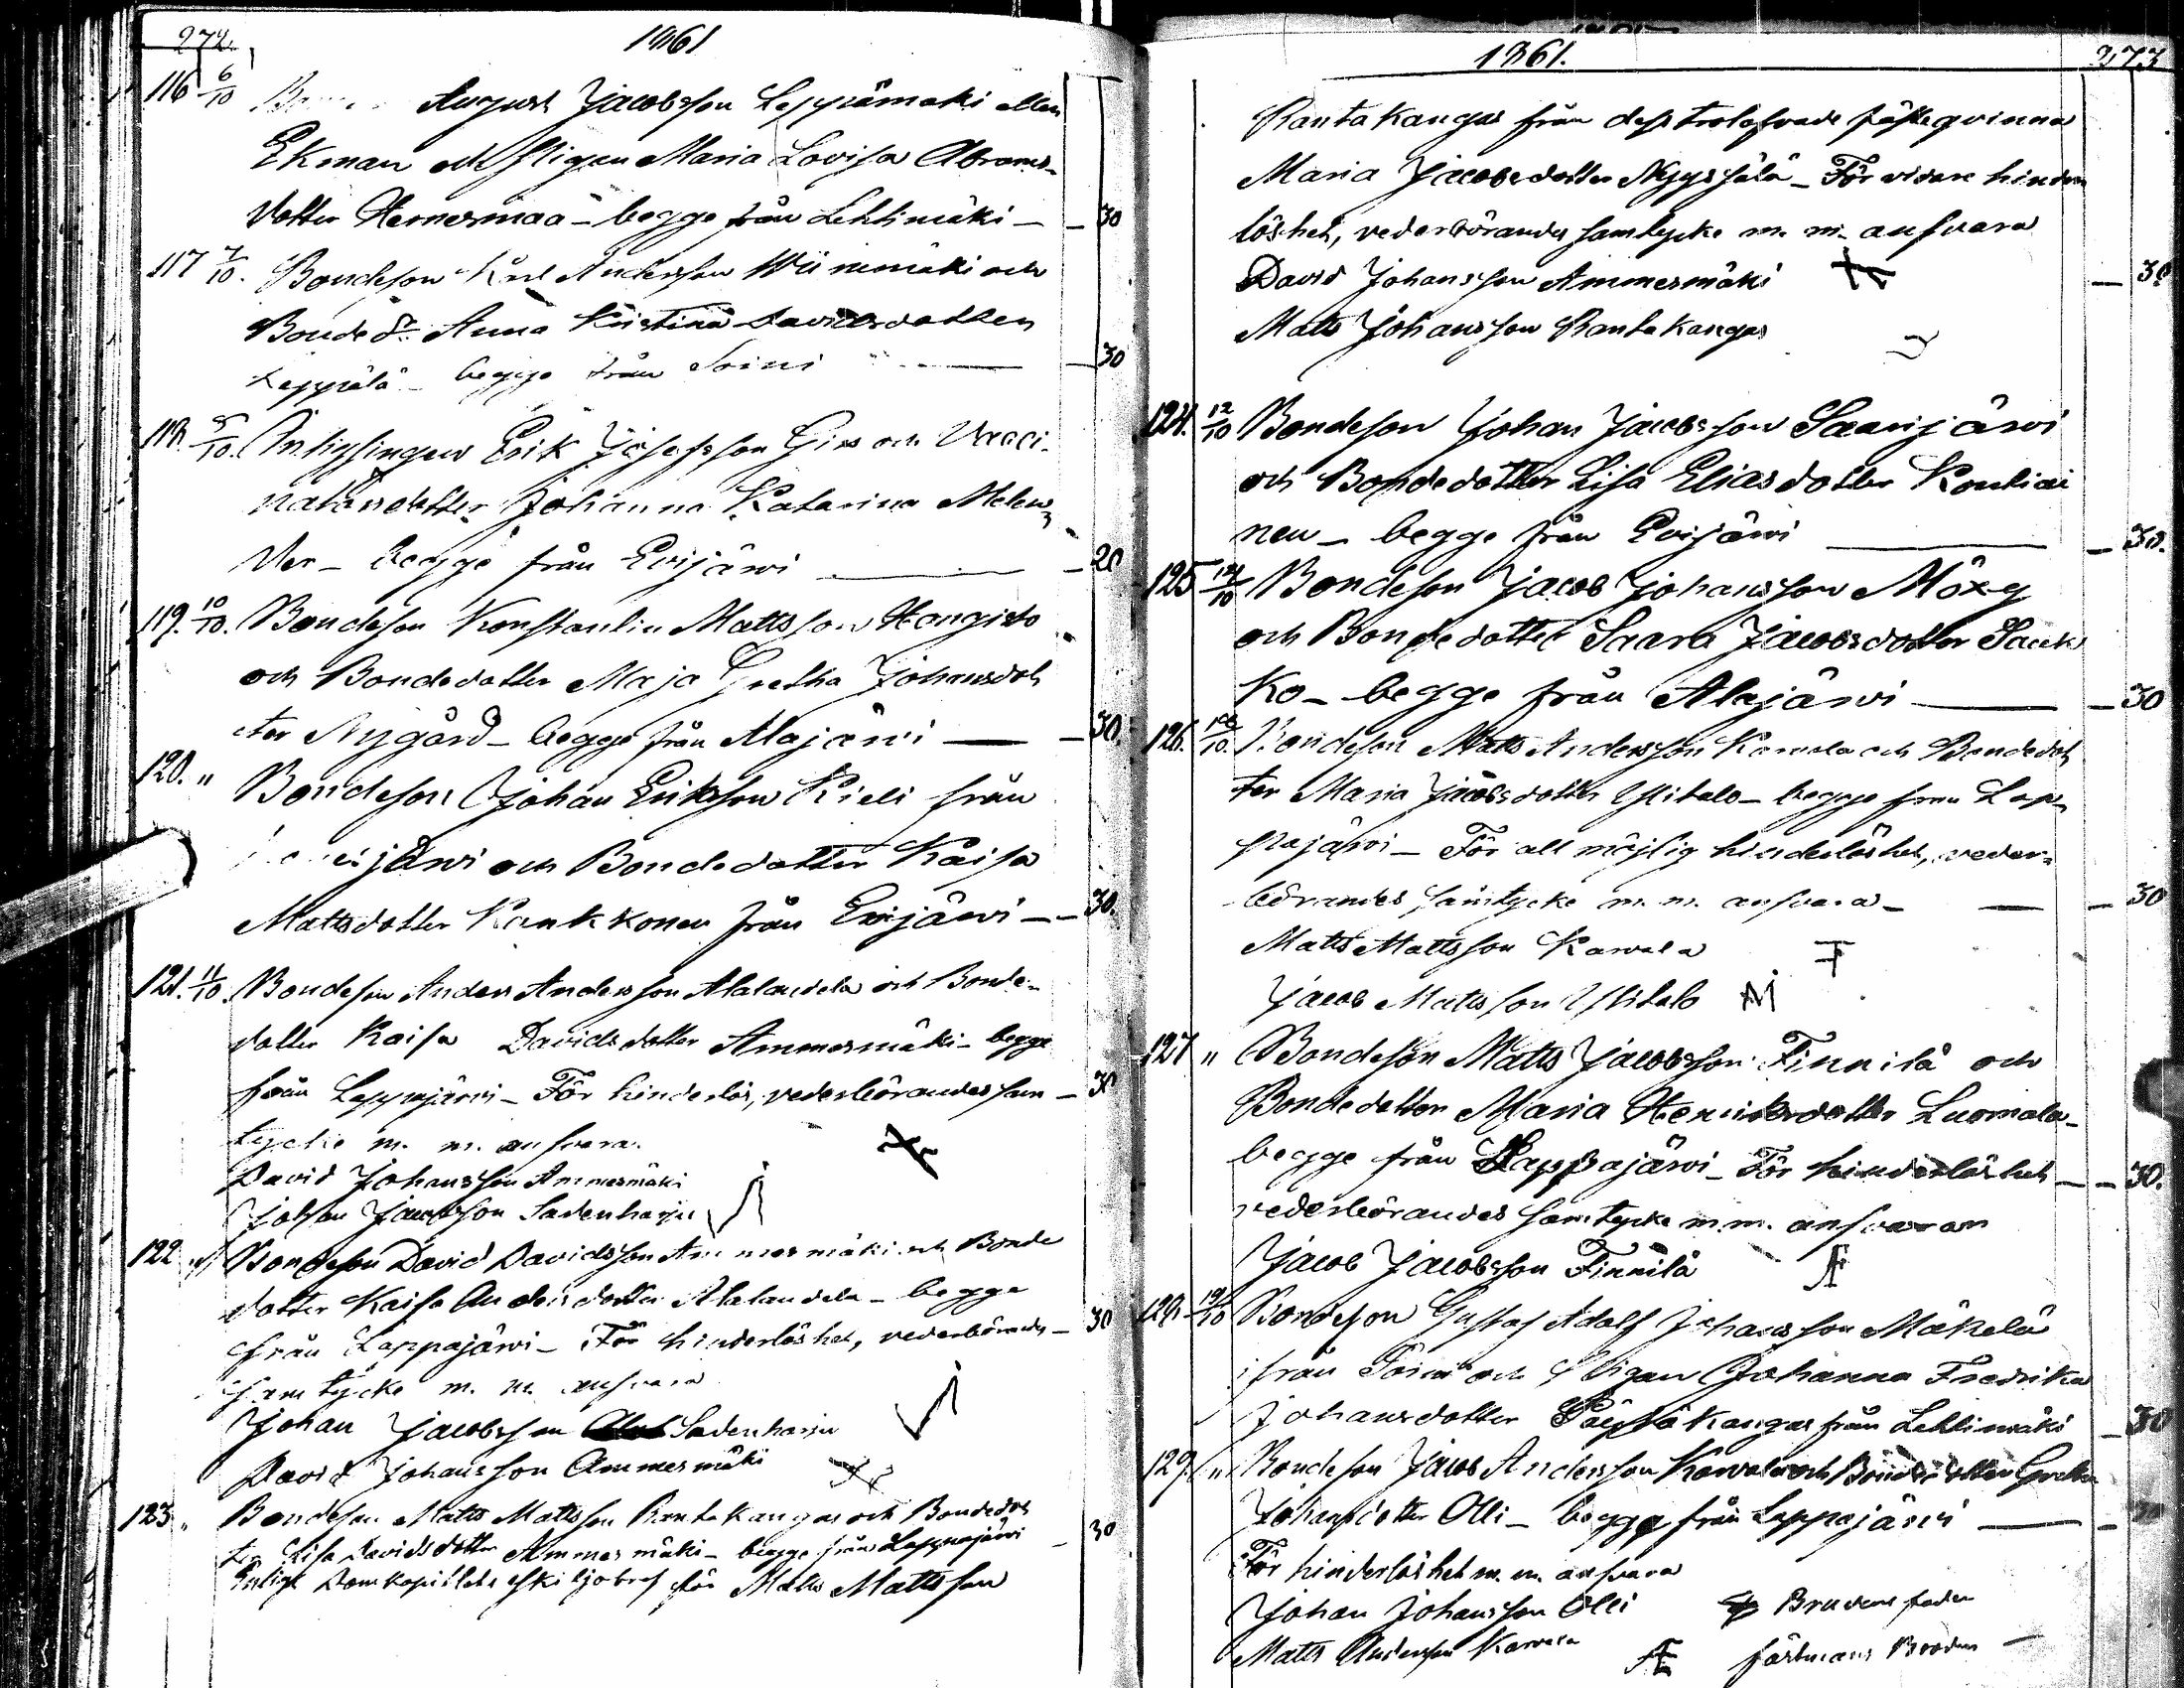 272.
1861
116 6/10 August Jacobsson Leppämäki eller
Ekman och Pigan Maria Lovisa Abrams-
dotter Hernesmaa - begge från Lehtimäki - - 30
117 7/10. Bondeson Karl Andersson Wiinimäki och
Bonded:r Anna Kristina Davidsdotter
Leppälä - begge från Soini - 30
118. 8/10. Inhysingen Erik Josefsson och
dotter Johanna Katarina Melen-
der - begge från Evijärvi - 20
119. 10/10. Bondeson Konstantin Mattsson Hangisto
och Bondedotter Maja Gretha Johansdot
ter Nygård - begge från Alajärvi - 30.
120. " Bondeson Johan Eriksson Kieli från
järvi och Bondedotter Kaisa
Mattsdotter Kaukkonen från Evijärvi - - 30.
121. 11/10. Bondeson Anders Andersson Alalandela och Bonde-
dotter Kaisa Davidsdotter Ammesmäki - begge
från Lappajärvi - För hinderlös, vederbörandes sam - 30
tycke m. m. ansvara.
David Johansson Ammesmäki
Johan Jacobsson Sadenharju
122 " Bondeson David Davidsson Ammesmäki och Bonde
dotter Kaisa Andersdotter Alalandela - begge
från Lappajärvi - För hinderlöshet, vederbörandes - 30
samtycke m. m. ansvara
Johan Jacobsson Sadenharju
David Johansson Ammesmäki
123 " Bondeson Matts Mattsson Rantakangas och Bondedot
ter Lisa Davidsdotter Ammesmäki - begge från Lappajärvi - 30
Enligt Domkapitlets skiljobref för Matts Mattsson
1861.
273
Rantakangas från dess trolofvade fästeqvinna
Maria Jacobsdotter Nyyssälä - För vidare hinder
löshet, vederbörandes samtycke m. m. ansvara
David Johansson Ammesmäki - 30
Matts Johansson Rantakangas
124. 12/10 Bondeson Johan Jacobsson Saarijärvi
och Bondedotter Lisa Eliasdotter Konliai
nen - begge från Evijärvi - 30.
125 14/10 Bondeson Jacob Johansson Möxy
och Bondedotter Saara Jacobsdotter Sauk
ko - begge från Alajärvi - 30
126. /10. Bondeson Matts Andersson Kawala och Bondedot
ter Maria Jacobsdotter Ylitalo - begge från Lap-
pajärvi - För all möjlig hinderlöshet, veder-
börandes samtycke m. m. ansvara - - 30
Matts Mattsson Kawala
Jacob Mattsson Ylitalo
127 " Bondeson Matts Jacobsson Finnilä och
Bondedotter Maria Henriksdotter Luomala -
begge från Lappajärvi - För hinderlöshet - - 30.
vederbörandes samtycke m. m. ansvarar
Jacob Jacobsson Finnilä
128 19/10 Bondeson Gustaf Adolf Johansson Mäkelä
från Soini och Pigan Johanna Fredrika
Johansdotter från Lehtimäki - 30
129. " Bondeson Jacob Andersson Kawala och Bondedotter Gretha
Johansdotter Olli - begge från Lappajärvi -
För hinderlöshet m. m. ansvara
Johan Johansson Olli Brudens fader
Matts Andersson Kawala fästmans Broder